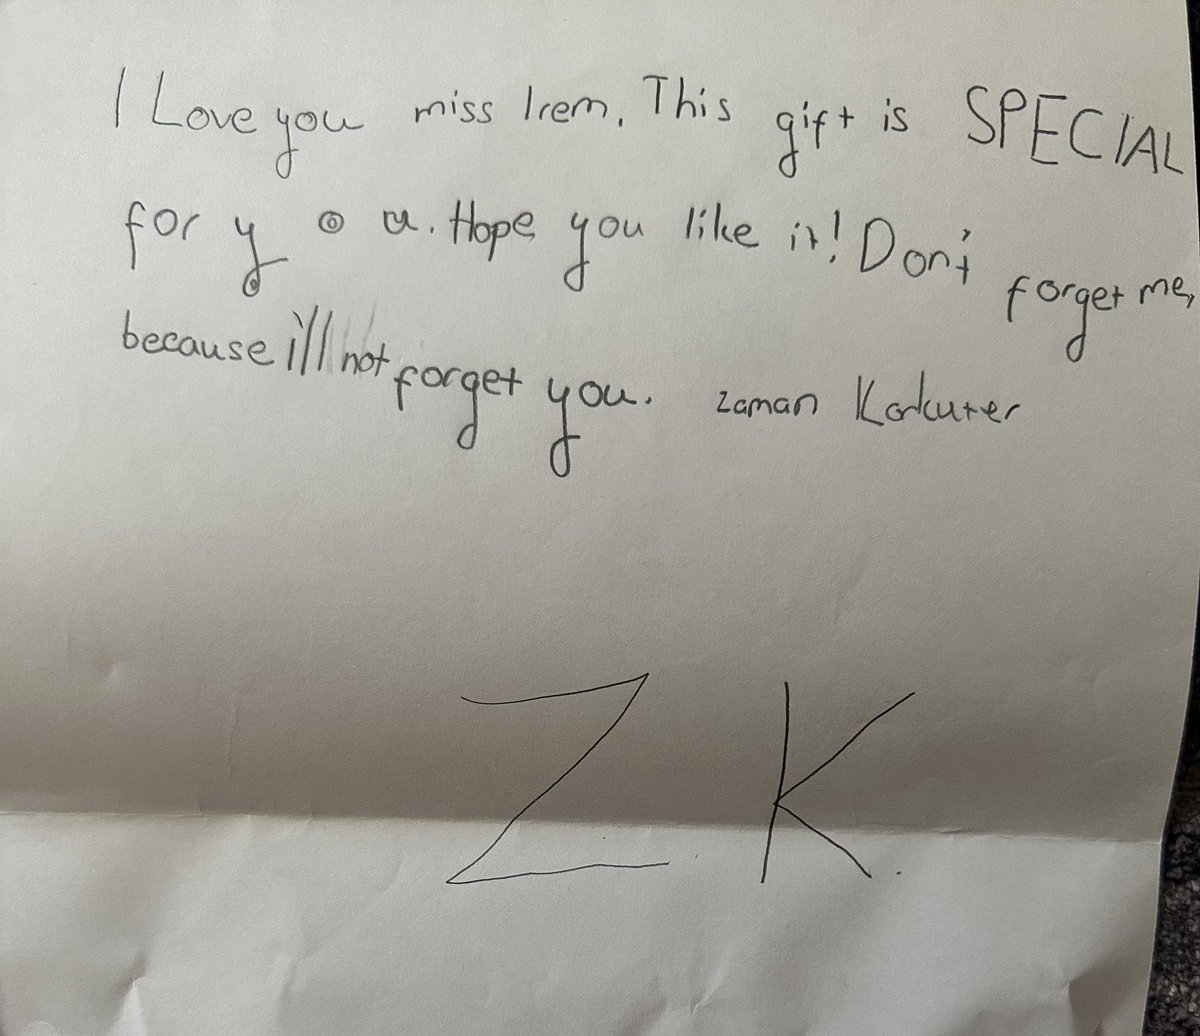 I Love you miss Irem. This gift is SPECIAL
for you. Hope you like it! Don't forget me,
because i'll not forget you. zaman Korkuter
Z K.